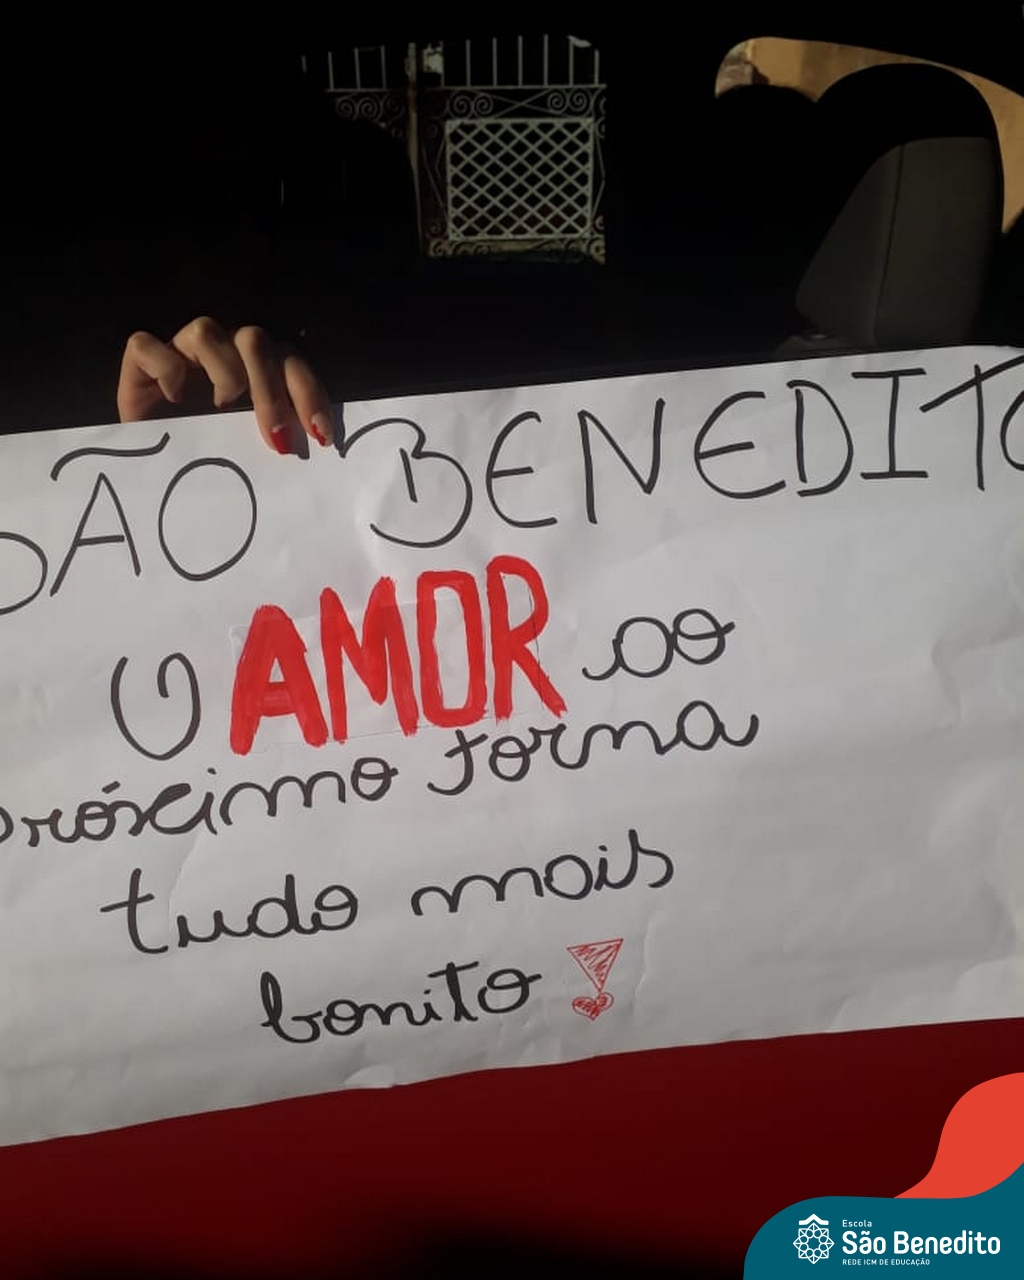 SÃO BENEDITO
O AMOR ao
próximo torna
tudo mais
bonito!
Escola
São Benedito
REDE ICM DE EDUCAÇÃO